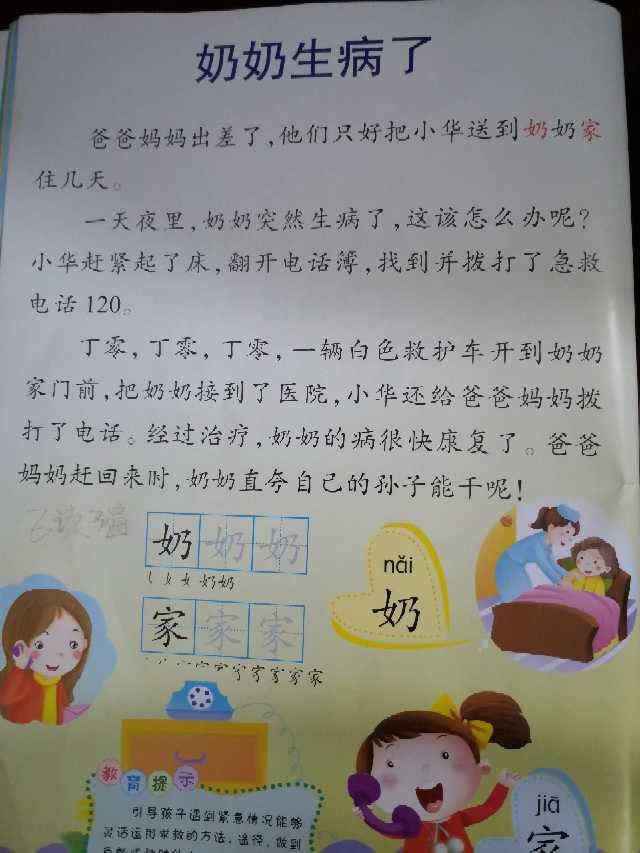 奶奶生病了
爸爸妈妈出差了，他们只好把小华送到奶奶家
住几天。
一天夜里，奶奶突然生病了，这该怎么办呢？
小华赶紧起了床，翻开电话簿，找到并拨打了急救
电话120。
丁零，丁零，丁零，一辆白色救护车开到奶奶
家门前，把奶奶接到了医院，小华还给爸爸妈妈拨
打了电话。经过治疗，奶奶的病很快康复了。爸爸
妈妈赶回来时，奶奶直夸自己的孙子能干呢！
奶奶奶
奶奶
家家家
nǎi
奶
教育提示
引导孩子遇到紧急情况能够
灵活运用求救的方法、途径，做到
jiā
家